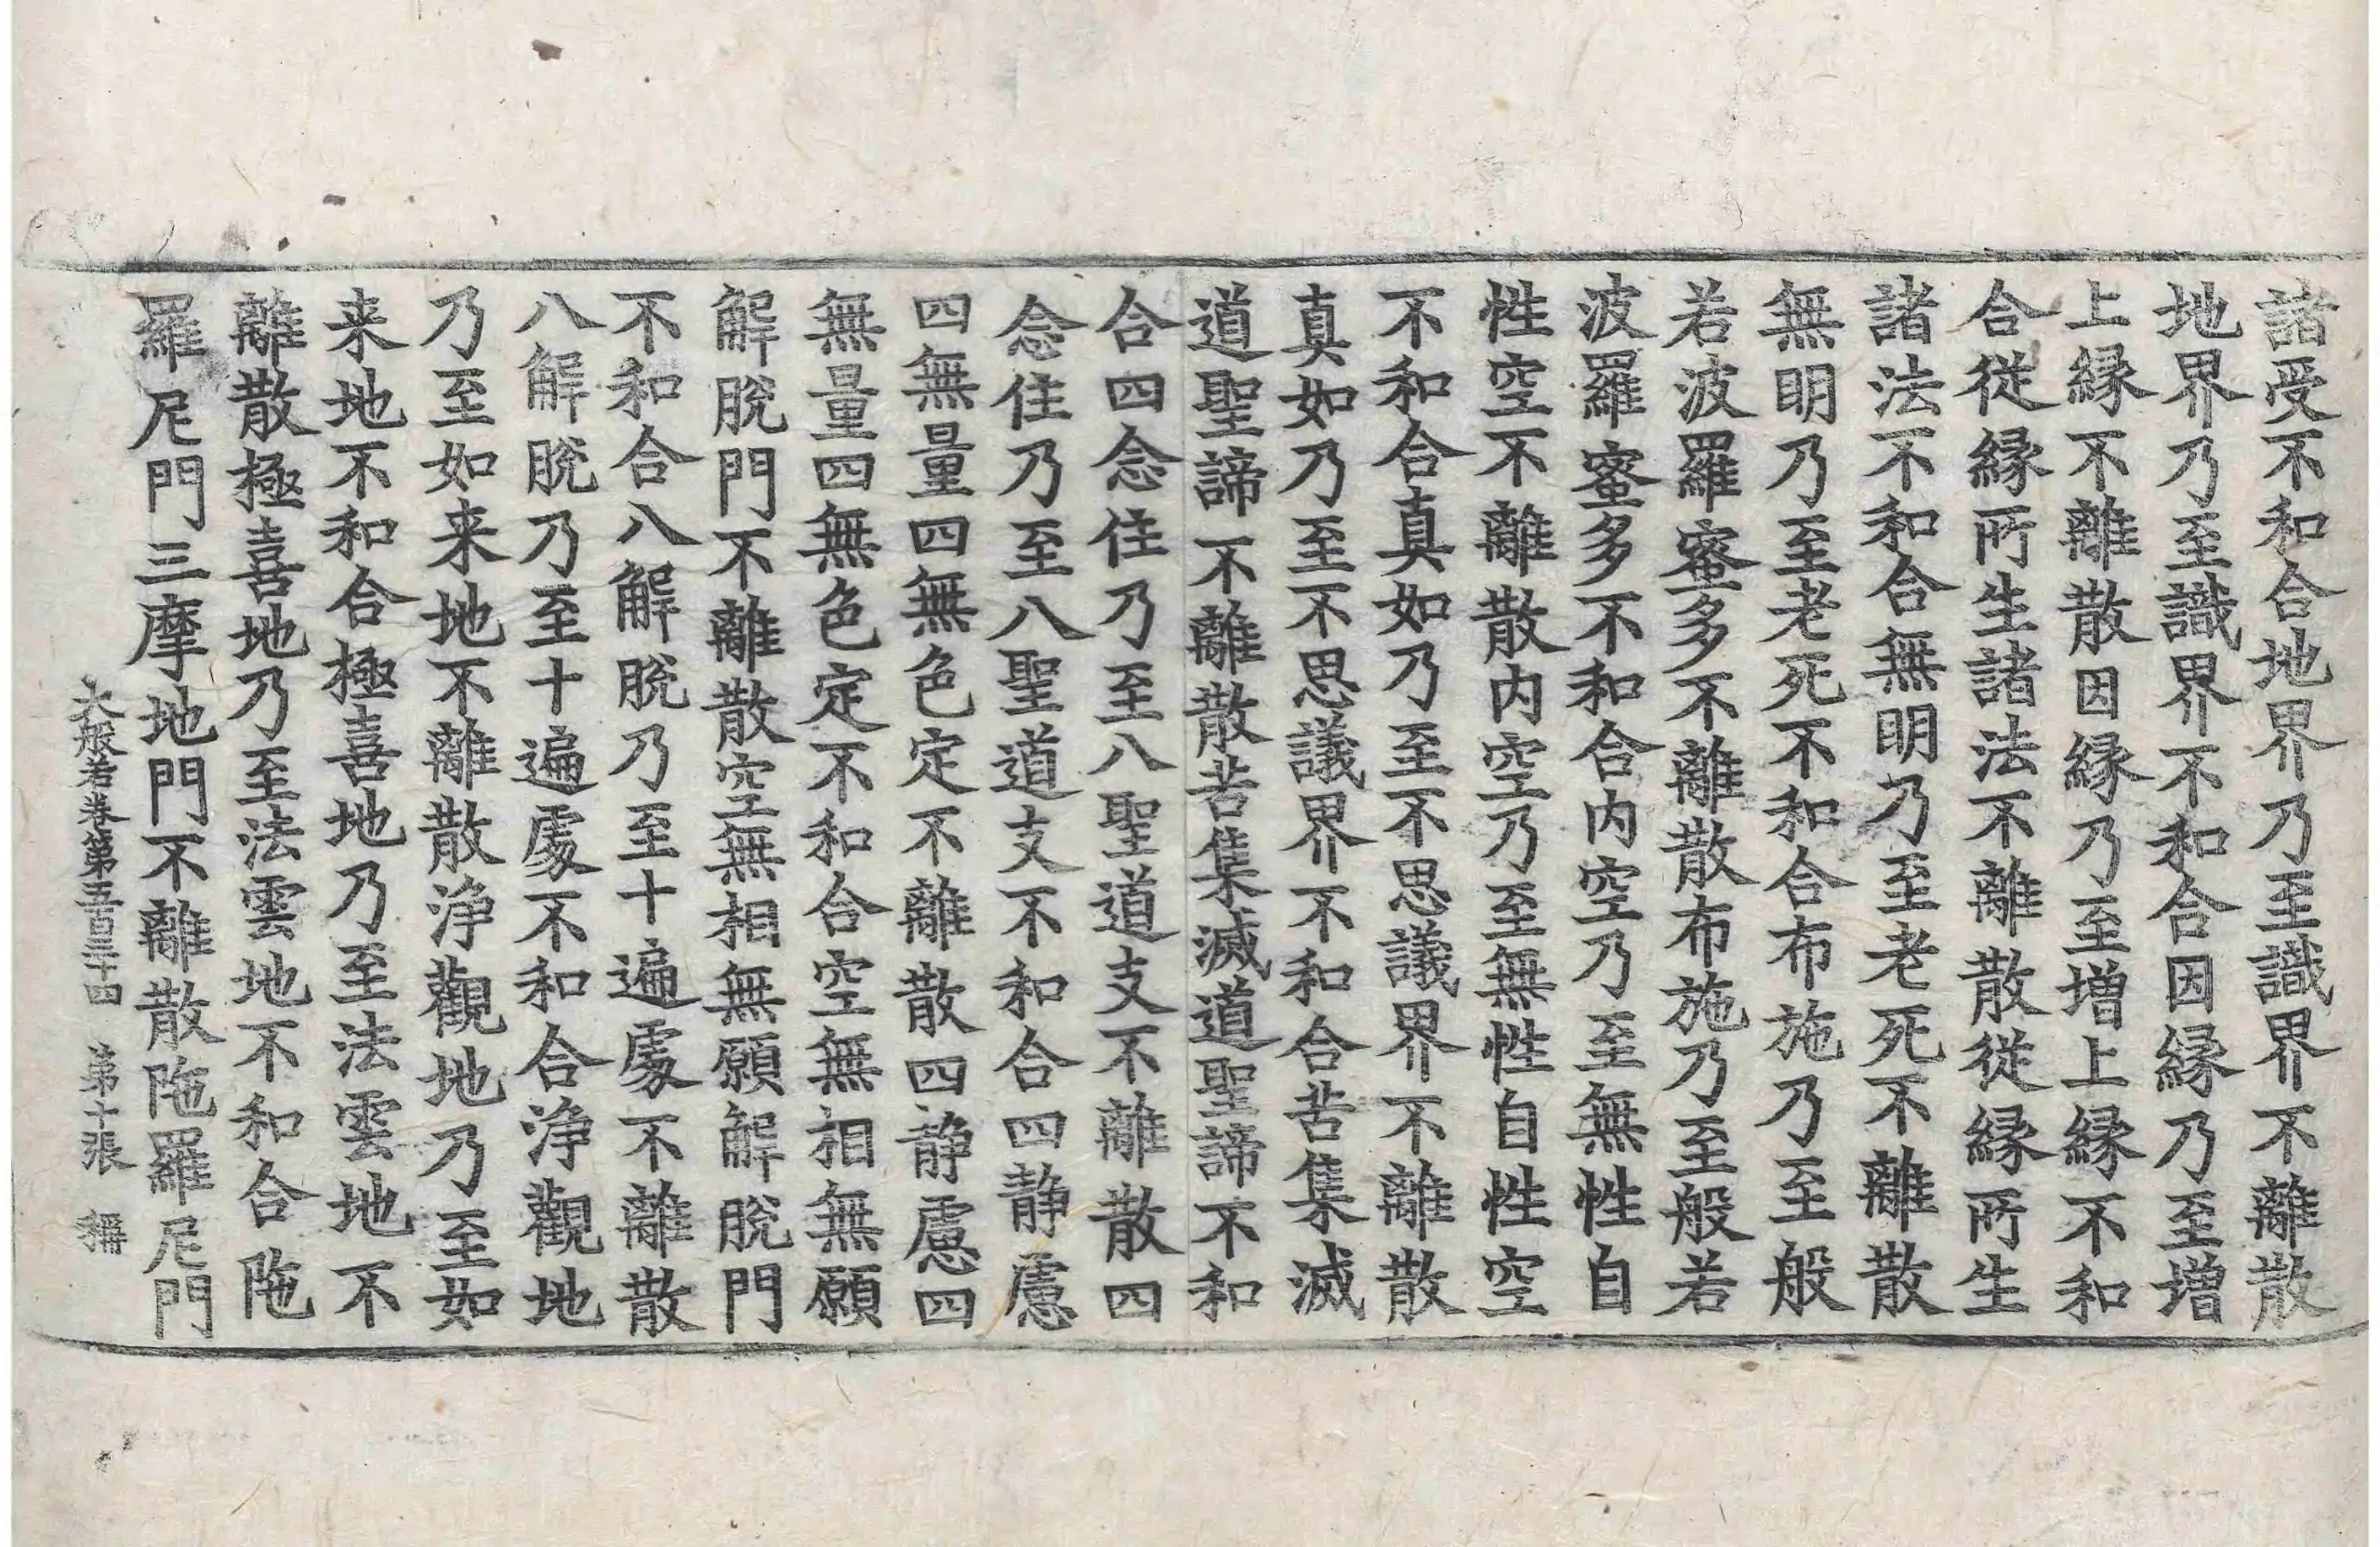 諸受不和合地界乃至識界不離散
地界乃至識界不和合因縁乃至增
上縁不離散因縁乃至增上縁不和
合從縁所生諸法不離散從縁所生
諸法不和合無明乃至老死不離散
無明乃至老死不和合布施乃至般
若波羅蜜多不離散布施乃至般若
波羅蜜多不和合内空乃至無性自
性空不離散内空乃至無性自性空
不和合真如乃至不思議界不離散
真如乃至不思議界不和合苦集滅
道聖諦不離散苦集滅道聖諦不和
合四念住乃至八聖道支不離散四
念住乃至八聖道支不和合四静慮
四無量四無色定不離散四静慮四
無量四無色定不和合空無相無願
解脫門不離散空無相無願解脫門
不和合八解脫乃至十遍處不離散
八解脫乃至十遍處不和合浄觀地
乃至如来地不離散浄觀地乃至如
来地不和合極喜地乃至法雲地不
離散極喜地乃至法雲地不和合陁
羅尼門三摩地門不離散陁羅尼門
大般若卷第五百三十四 第十張 稱